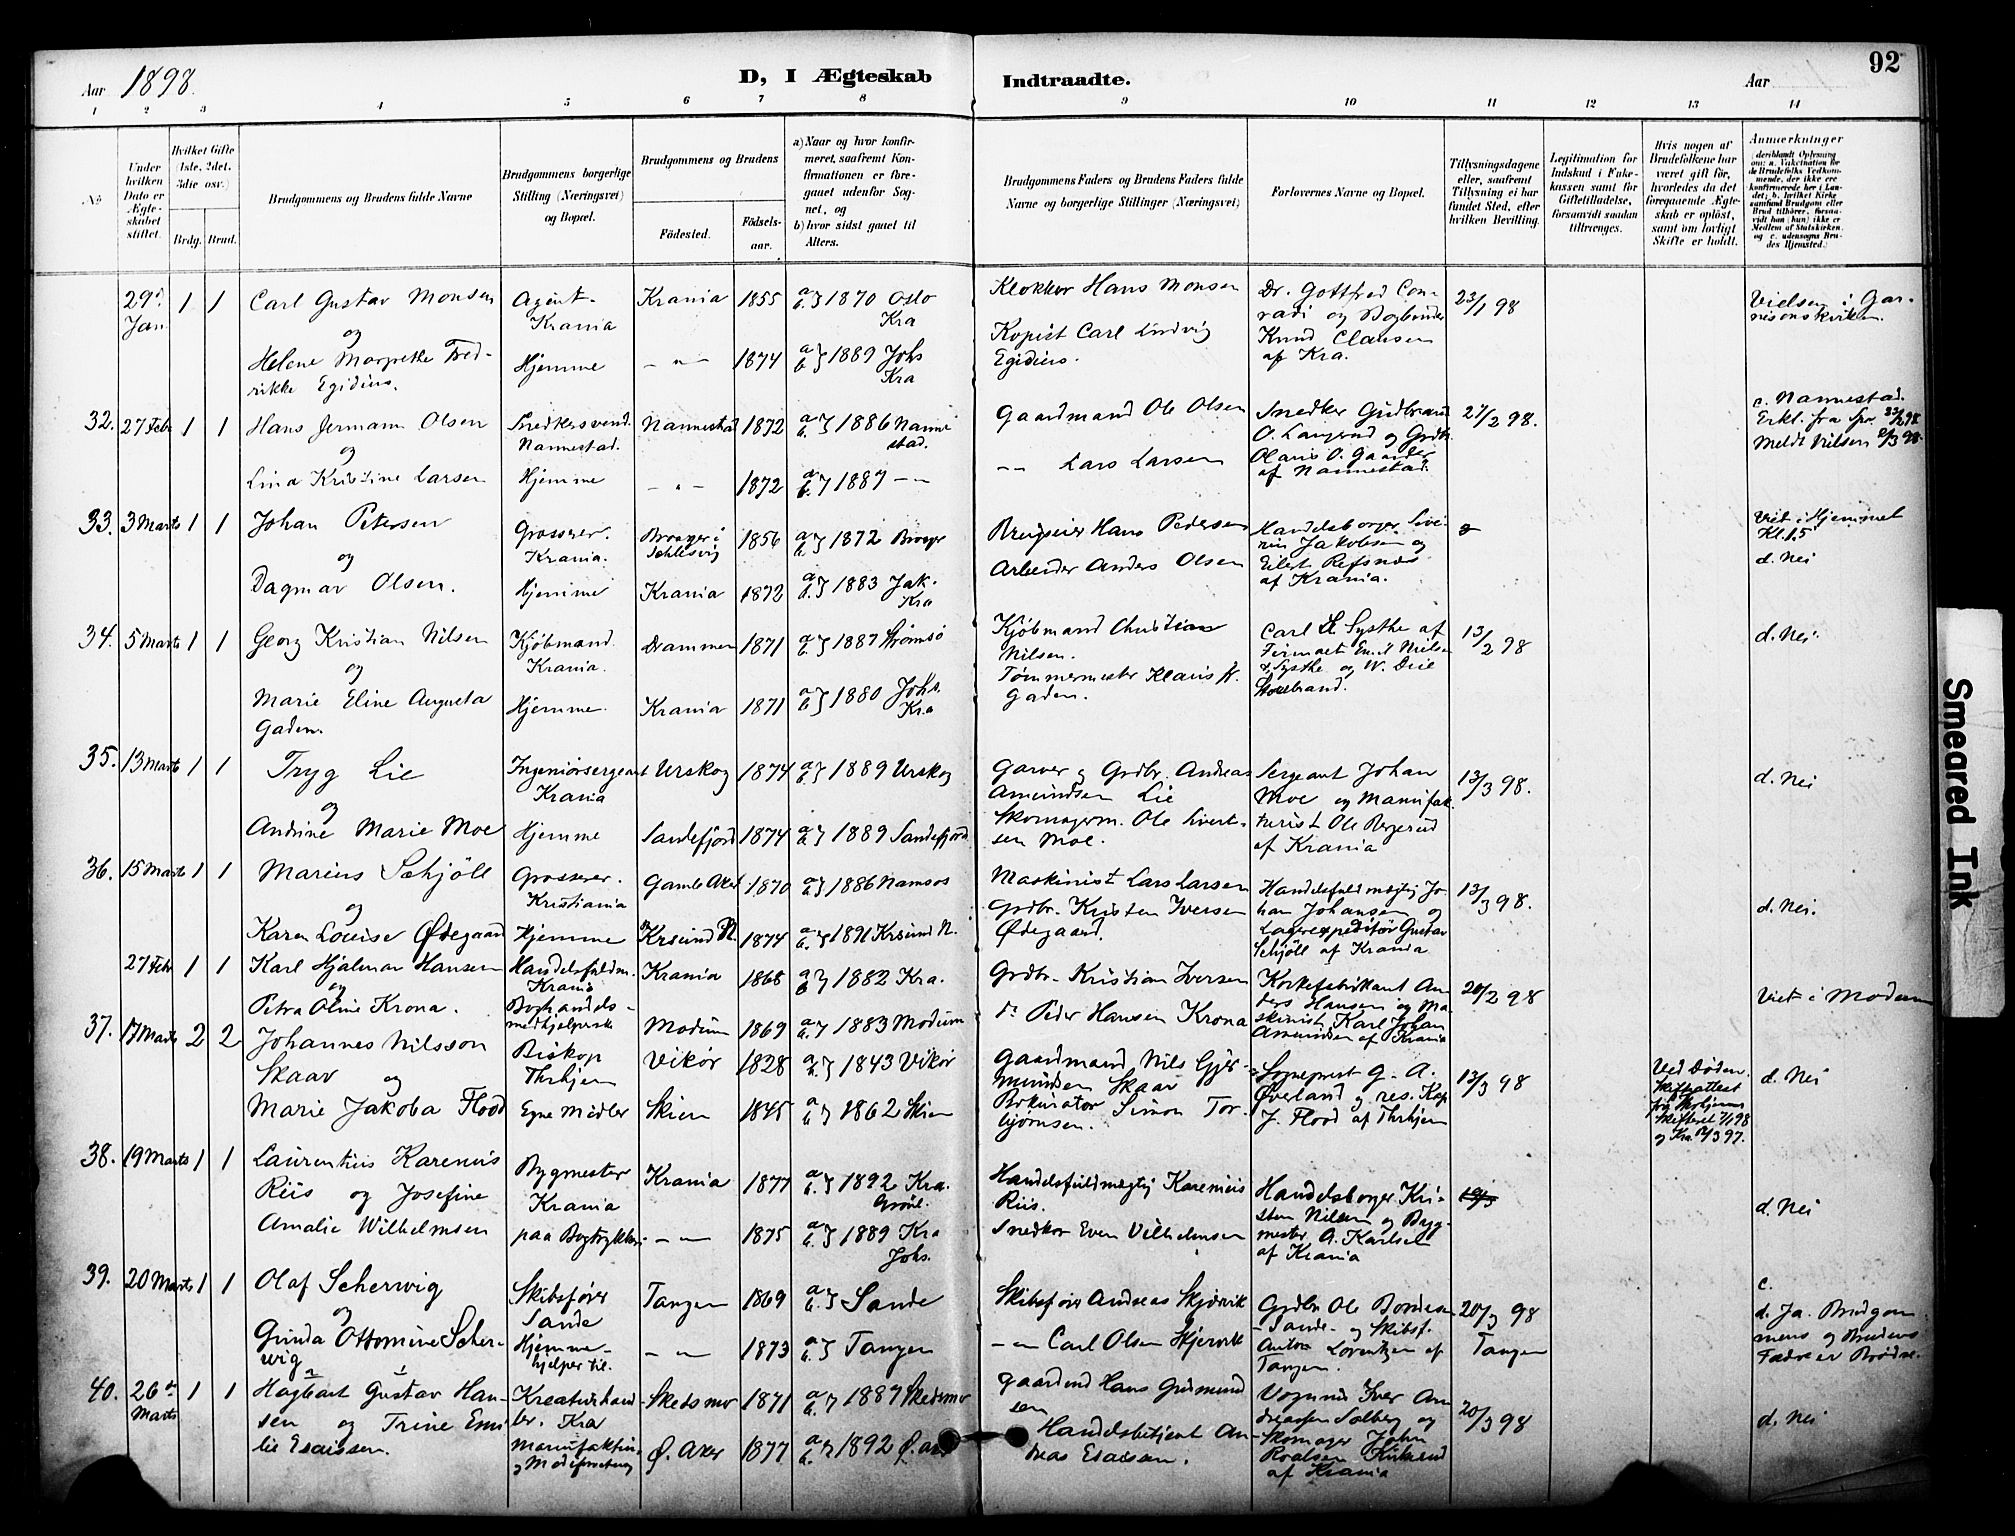 92
Aar 1898.
D, I Ægteskab
Indtraadte.
Aar
1 2 3 4 5 6 7 8 9 10 11 12 13 14
No
Under hvilken Dato er Ægteskabet stiftet.
Hvilket Gifte (1ste, 2det, 3die osv.)
Brdg. Brud.
Brudgommens og Brudens fulde Navne
Brudgommens borgerlige Stilling (Næringsvei) og Bopæl.
Brudgommens og Brudens
Fødested.
Fødselsaar.
a) Naar og hvor konfirmeret, saafremt Konfirmationen er foregaaet udenfor Sognet, og
b) hvor sidst gaaet til Alters.
Brudgommens Faders og Brudens Faders fulde Navne og borgerlige Stillinger (Næringsvei)
Forlovernes Navne og Bopæl.
Tillysningsdagene eller, saafremt Tillysning ei har fundet Sted, efter hvilken Bevilling.
Legitimation for Indskud i Enkekassen samt for Giftetilladelse, forsaavidt saadan tiltrænges.
Hvis nogen af Brudefolkene har været gift før, hvorledes da det foregaaende Ægteskab er opløst, samt om lovligt Skifte er holdt.
Anmerkninger
29de Jan 1 1 Carl Gustav Monsen Agent Krania Krania 1855 a b} 1870 Oslo Kra Klokker Hans Monsen Dr. Gottfred Conradi og Bogbinder Knud Clausen af Kra. 23/1 98 Vielsen i Garnisonskirken.
og
Helene Margrethe Fredrikke Egidius. Hjemme - " - 1874 a b} 1889 Johs Kra Kopist Carl Ludvig Egidius.
32. 27 Febr 1 1 Hans Jermann Olsen Snedkersvend. Nannestad. Nannestad 1872 a b} 1886 Nannestad. Gaardmand Ole Olsen Snedker Gudbrand O. Langrud og Grdbr. Olaus O. Gaarder af Nannestad. 27/2 98. c. Nannestad. Erkl. fra Spr. 23/2 98 Meldt Nilsen 2/3 98.
og
Lina Kristine Larsen Hjemme - " - 1872 a b} 1887 - " - - " - Lars Larsen
33. 3 Marts 1 1 Johan Petersen Grosserer. Krania. Broager i Schlesvig 1856 a b} 1872 Broager Brugseier Hans Pedersen Handelsborger Severin Jakobsen og Eilert Refsnæs af Krania. Viet i Hjemmet Kl. 1.5 d. Nei
og
Dagmar Olsen. Hjemme Krania 1872 a b} 1883 Jak. Kra Arbeider Anders Olsen
34. 5 Marts 1 1 Georg Kristian Nilsen Kjøbmand. Krania. Drammen 1871 a b} 1887 Strømsö Kjöbmand Christian Nilsen. Carl Systhe af Firmaet Emil Nielsen & Systhe og W. Storebrand. 13/2 98 d. Nei.
og
Marie Eline Augusta Gaden. Hjemme. Krania 1871 a b} 1880 Johs. Kra Tømmermester Klaus Gaden.
35. 13 Marts 1 1 Tryg Lie Ingeniørsergeant Krania Urskog 1874 a b} 1889 Urskog Garver og Grdbr. Andreas Amundsen Lie Sergeant Johan Moe og Manufakturist Ole Bergerud af Krania 13/3 98. d. Nei
og
Andrine Marie Moe Hjemme Sandefjord 1874 a b} 1889 Sandefjord Skomagerm. Ole Sivertsen Moe.
36. 15 Marts 1 1 Marius Schjöll Grosserer. Kristiania Gamle Aker 1870 a b} 1886 Namsos Maskinist Lars Larsen Handelsfuldmægtig Johan Johansen og Lagerexpeditör Gustav Schjöll af Krania 13/3 98. d. Nei.
og
Karen Louise Ødegaard Hjemme Krsund N. 1874 a b} 1891 Krsund N. Grdbr. Kristen Iversen Ødegaard.
27 Febr 1 1 Karl Hjalmar Hansen Handelsfuldm. Krania Krania 1868 a b} 1882 Kra. Grdbr. Kristian Iversen Korkefabrikant Anders Hansen og Maskinist Karl Johan Amundsen af Krania 20/2 98 Viet i Modum
og
Petra Oline Krona. Boghandelsmedhjelperske Modum 1869 a b} 1883 Modum do Peder Hansen Krona
37. 17 Marts 2 2 Johannes Nilsson Skaar og Biskop Thrhjem Vikör 1828 a b} 1843 Vikör Gaardmand Nils Gjermundsen Skaar Sogneprest G. A. Øverland og res. Kap J. Flood af Thrhjem 13/3 98 Ved Döden. Skifteattest fra Thrhjems Skifteret 7/1 98 og Kra. 12/3 97. d. Nei
Marie Jakoba Flood Egne Midler Skien 1845 a b} 1862 Skien Prokurator Simon Torbjörnsen.
38. 19 Marts 1 1 Laurentius Karenius Riis og Josefine Amalie Wilhelmsen Bygmester Krania Krania 1877 a b} 1892 Kra. Grønl. Handelsfuldmægtig Karenius Riis. Handelsborger Kristen Nilsen og Bygmester A. Karlsen af Krania d. Nei
paa Bogtrykkeri - " - 1875 a b} 1889 Kra Johs. Snedker Even Vilhelmsen
39. 20 Marts 1 1 Olaf Scherwig Skibsfører Sande Tangen 1869 a b} Sande Skibsfører Andreas Skjervik Grdbr Ole Bondesen Sande og Skibsf. Anton Lorentzen af Tangen. 20/3 98 Tangen c. d. Ja. Brudgommens og Brudens Fædre er Brødre.
og
Gunda Ottomine Scherwig Hjemmehjelper til. - " - 1873 a b} Tangen - " - Carl Olsen Skjervik
40. 26de Marts 1 1 Hagbart Gustav Hansen og Trine Emilie Esaissen. Kreaturhandler. Kra Skedsmo 1871 a b} 1887 Skedsmo Gaardmd Hans Gudmundsen Vognmd Iver Andreassen Solberg og Skomager John Roalsen Kirkerud af Krania 20/3 98 d. Nei
Manufaktur og Modeforretning Ø. Aker 1877 a b} 1892 Ø. Aker Handelsbetjent Andreas Esaissen.
Smeared Ink